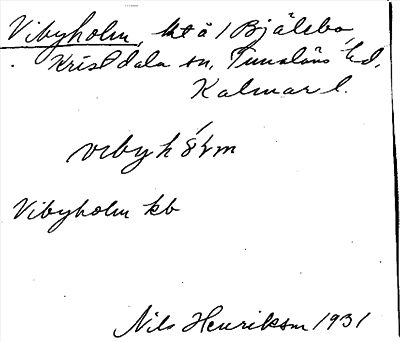 Vibyholm, ht å 1 Bjälebo,
Kristdala sn, Tunaläns hd,
Kalmar l.
vibyh
Vibyholm kb
Nils Henriksson 1931